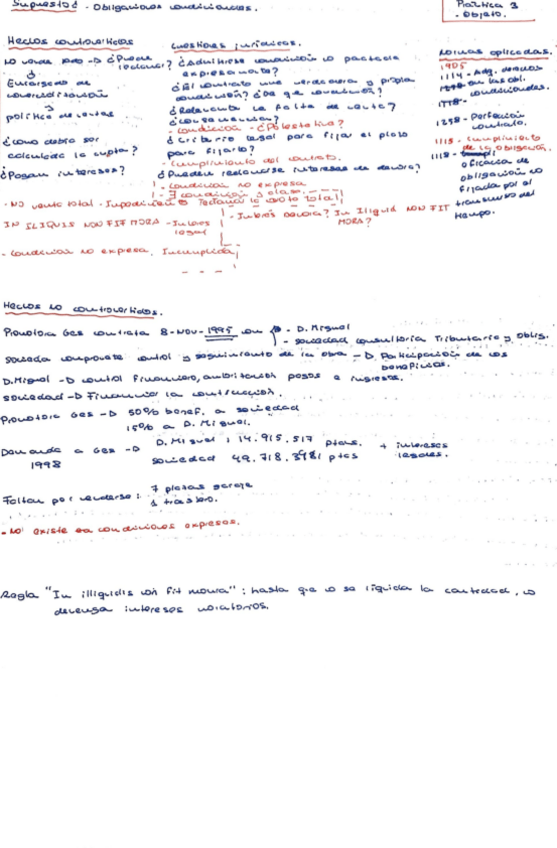 Supuesto 2 - Obligaciones condicionales.
Práctica 3
- Objeto.
Hechos controvertidos
No vende todo → ¿Puede reclamar?
Encargado de comercialización
política de ventas
¿Cómo debió ser calculada la cuota?
¿Pagan intereses?
Cuestiones jurídicas.
¿Admitirse condición no pactada
expresamente?
¿El contrato una verdadera y propia
condición? ¿De qué condición?
¿Relevante la falta de venta?
¿Consecuencia?
- Condición - ¿Potestativa?
¿Criterio legal para fijar el plazo
para fijarlo?
- Cumplimiento del contrato.
¿Pueden reclamarse intereses de demora?
- Condición no expresa
Normas aplicadas.
1905
1114 - Adq. derechos
en las obl.
condicionales.
1258 - Perfección
contrato.
1115 - Cumplimiento
de la obligación.
1118 -
eficacia de
obligación no
fijada por el
transcurso del
tiempo.
- No venta total -
la venta total
IN ILIQUIS NON FIT MORA - Interés
legal
- Interés demora? In Iliquid NON FIT
MORA?
- Condición no expresa. Incumplida
Hechos no controvertidos.
Promotora Ges contrata 8-Nov-1995 con - D. Miguel
- sociedad consultoría Tributaria y Oblig.
sociedad control y seguimiento de la obra → Participación de los
beneficios.
D. Miguel → control financiero, autorización pagos e ingresos.
sociedad → Financiar la construcción.
Promotora Ges → 50% benef. a sociedad
15% a D. Miguel.
Demanda a Ges → D. Miguel: 14.915.517 ptas. + intereses
1998 sociedad 49.718.391 ptas legales.
Faltan por venderse: 7 plazas garaje
1 trastero.
- No existe condiciones expresas.
Regla "In illiquidis non fit mora": hasta que no se liquida la cantidad, no
devenga intereses moratorios.